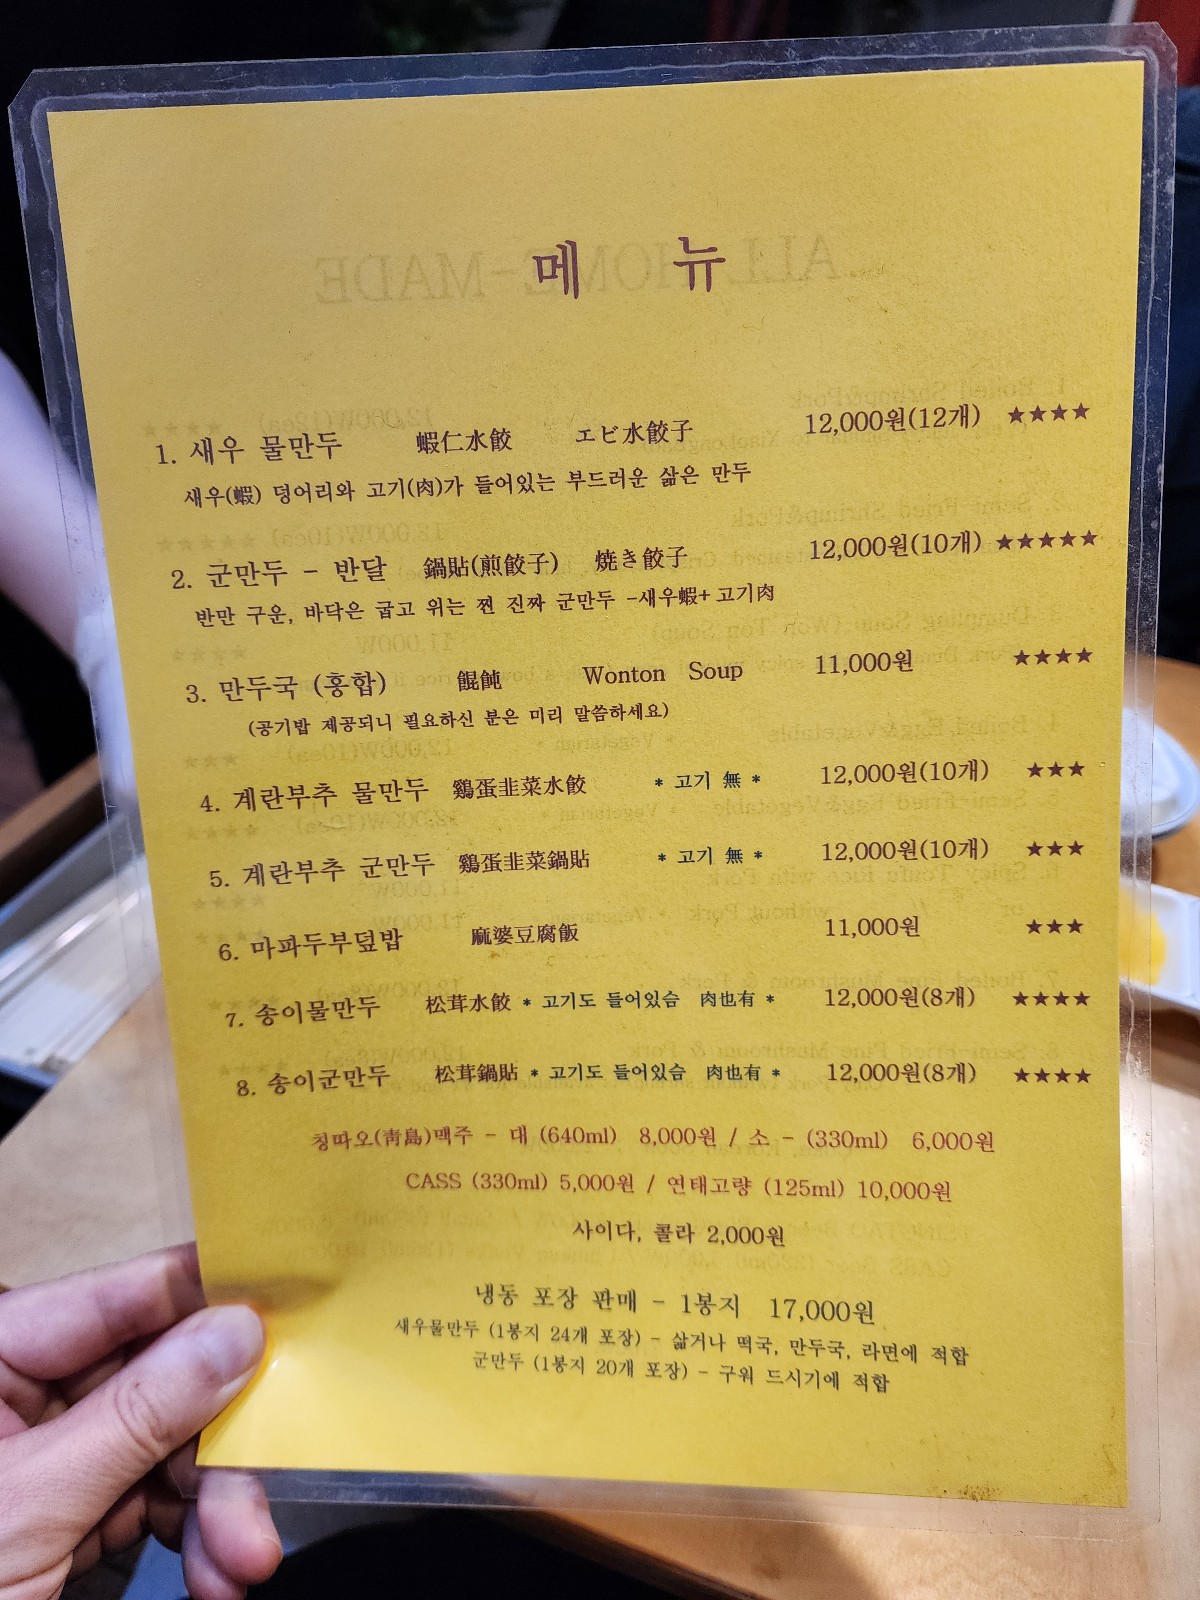 메 뉴
1. 새우 물만두 蝦仁水餃 エビ水餃子 12,000원(12개) ★★★★
새우(蝦) 덩어리와 고기(肉)가 들어있는 부드러운 삶은 만두
2. 군만두 - 반달 鍋貼(煎餃子) 焼き餃子 12,000원(10개) ★★★★★
반만 구운, 바닥은 굽고 위는 찐 진짜 군만두 -새우蝦+고기肉
3. 만두국 (훙합) 餛飩 Wonton Soup 11,000원 ★★★★
(공기밥 제공되니 필요하신 분은 미리 말씀하세요)
4. 계란부추 물만두 鷄蛋韭菜水餃 * 고기 無 * 12,000원(10개) ★★★
5. 계란부추 군만두 鷄蛋韭菜鍋貼 * 고기 無 * 12,000원(10개) ★★★
6. 마파두부덮밥 麻婆豆腐飯 11,000원 ★★★
7. 송이물만두 松茸水餃 * 고기도 들어있슴 肉也有 * 12,000원(8개) ★★★★
8. 송이군만두 松茸鍋貼 * 고기도 들어있슴 肉也有 * 12,000원(8개) ★★★★
칭따오(靑島)맥주 - 대 (640ml) 8,000원 / 소 - (330ml) 6,000원
CASS (330ml) 5,000원 / 연태고량 (125ml) 10,000원
사이다, 콜라 2,000원
냉동 포장 판매 - 1봉지 17,000원
새우물만두 (1봉지 24개 포장) - 삶거나 떡국, 만두국, 라면에 적합
군만두 (1봉지 20개 포장) - 구워 드시기에 적합